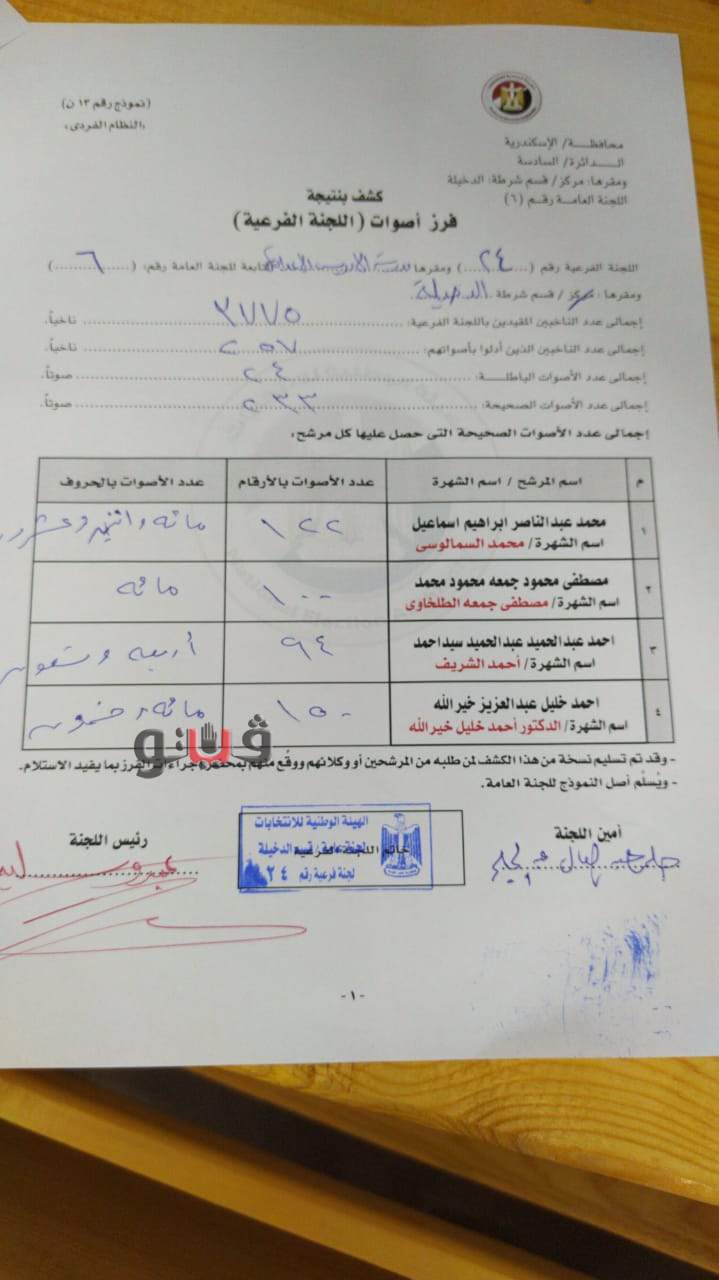 (نموذج رقم ١٣ ن)
«النظام الفردى»
محافظـــة/ الإسكندرية
الـــدائرة/ السادسة
ومقرها: مركز/ قسم شرطة: الدخيلة
اللجنة العامـة رقم (٦)
كشف بنتيجة
فرز أصوات (اللجنة الفرعية)
اللجنة الفرعية رقم (٢٤) ومقرها مدرسة تابعة للجنة العامة رقم: (٦)
ومقرها: مركز/ قسم شرطة الدخيلة
إجمالى عدد الناخبين المقيدين باللجنة الفرعية: ٣٧٧٥ ناخباً.
إجمالى عدد الناخبين الذين أدلوا بأصواتهم: ٢٥٧ ناخباً.
إجمالى عدد الأصوات الباطلـــة: ٢٤ صوتاً.
إجمالى عدد الأصوات الصحيحة: ٢٣٣ صوتاً.
إجمالى عدد الأصوات الصحيحة التى حصل عليها كل مرشح:
م اسم المرشح / اسم الشهرة عدد الأصوات بالأرقام عدد الأصوات بالحروف
١ محمد عبدالناصر ابراهيم اسماعيل ١٢٢ مائه واثنين وعشرون
اسم الشهرة/ محمد السمالوسى
٢ مصطفى محمود جمعه محمود محمد ١٠٠ مائه
اسم الشهرة/ مصطفى جمعه الطلخاوى
٣ احمد عبدالحميد عبدالحميد سيداحمد ٩٤ أربعه وتسعون
اسم الشهرة/ أحمد الشريف
٤ احمد خليل عبدالعزيز خيرالله ١٥٠ مائه وخمسون
اسم الشهرة/ الدكتور أحمد خليل خيرالله
ڤيتو
- وقد تم تسليم نسخة من هذا الكشف لمن طلبه من المرشحين أو وكلائهم ووقع منهم بمحضر إجراءات الفرز بما يفيد الاستلام.
- ويُسلم أصل النموذج للجنة العامة.
أمين اللجنة
خاتم اللجنة الفرعية
رئيس اللجنة
الهيئة الوطنية للانتخابات
لجنة عامة/ قسم الدخيلة
لجنة فرعية رقم ٢٤
-١-